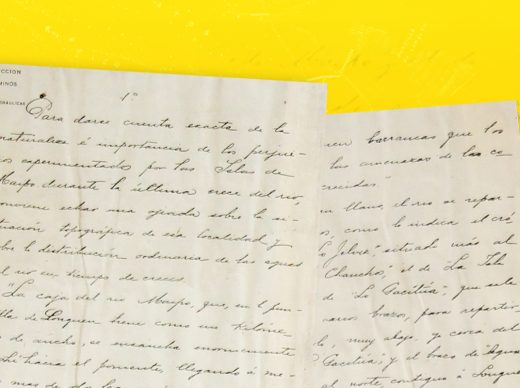 CCION
MINOS
DRAULICAS
1º
Para darse cuenta exacta de la
naturaleza é importancia de los perjui-
os esperimentados por las Islas de
Maipo durante la última crece del rio,
onviene echar una ojeada sobre la si-
tuacion topográfica de esa localidad y
bre la distribucion ordinaria de las aguas
el rio en tiempo de creces.
"La caja del rio Maipo, que, en l pun-
tilla de Lonquen tiene como un kilóme
de ancho, se ensancha enormemente
í hácia el poniente, llegando á me-
mas de dos le
uen barrancas que los
las amenazas de las co
recidas."
llano, el rio se repar-
s, como lo indica el cró
situado más al
Chaucho; el de "La Isla
de "La Pacitúa", que sale
varios brazos, para repartir
muy abajo, ya cerca del
y el brazo de
al norte, contiguo á Lonque